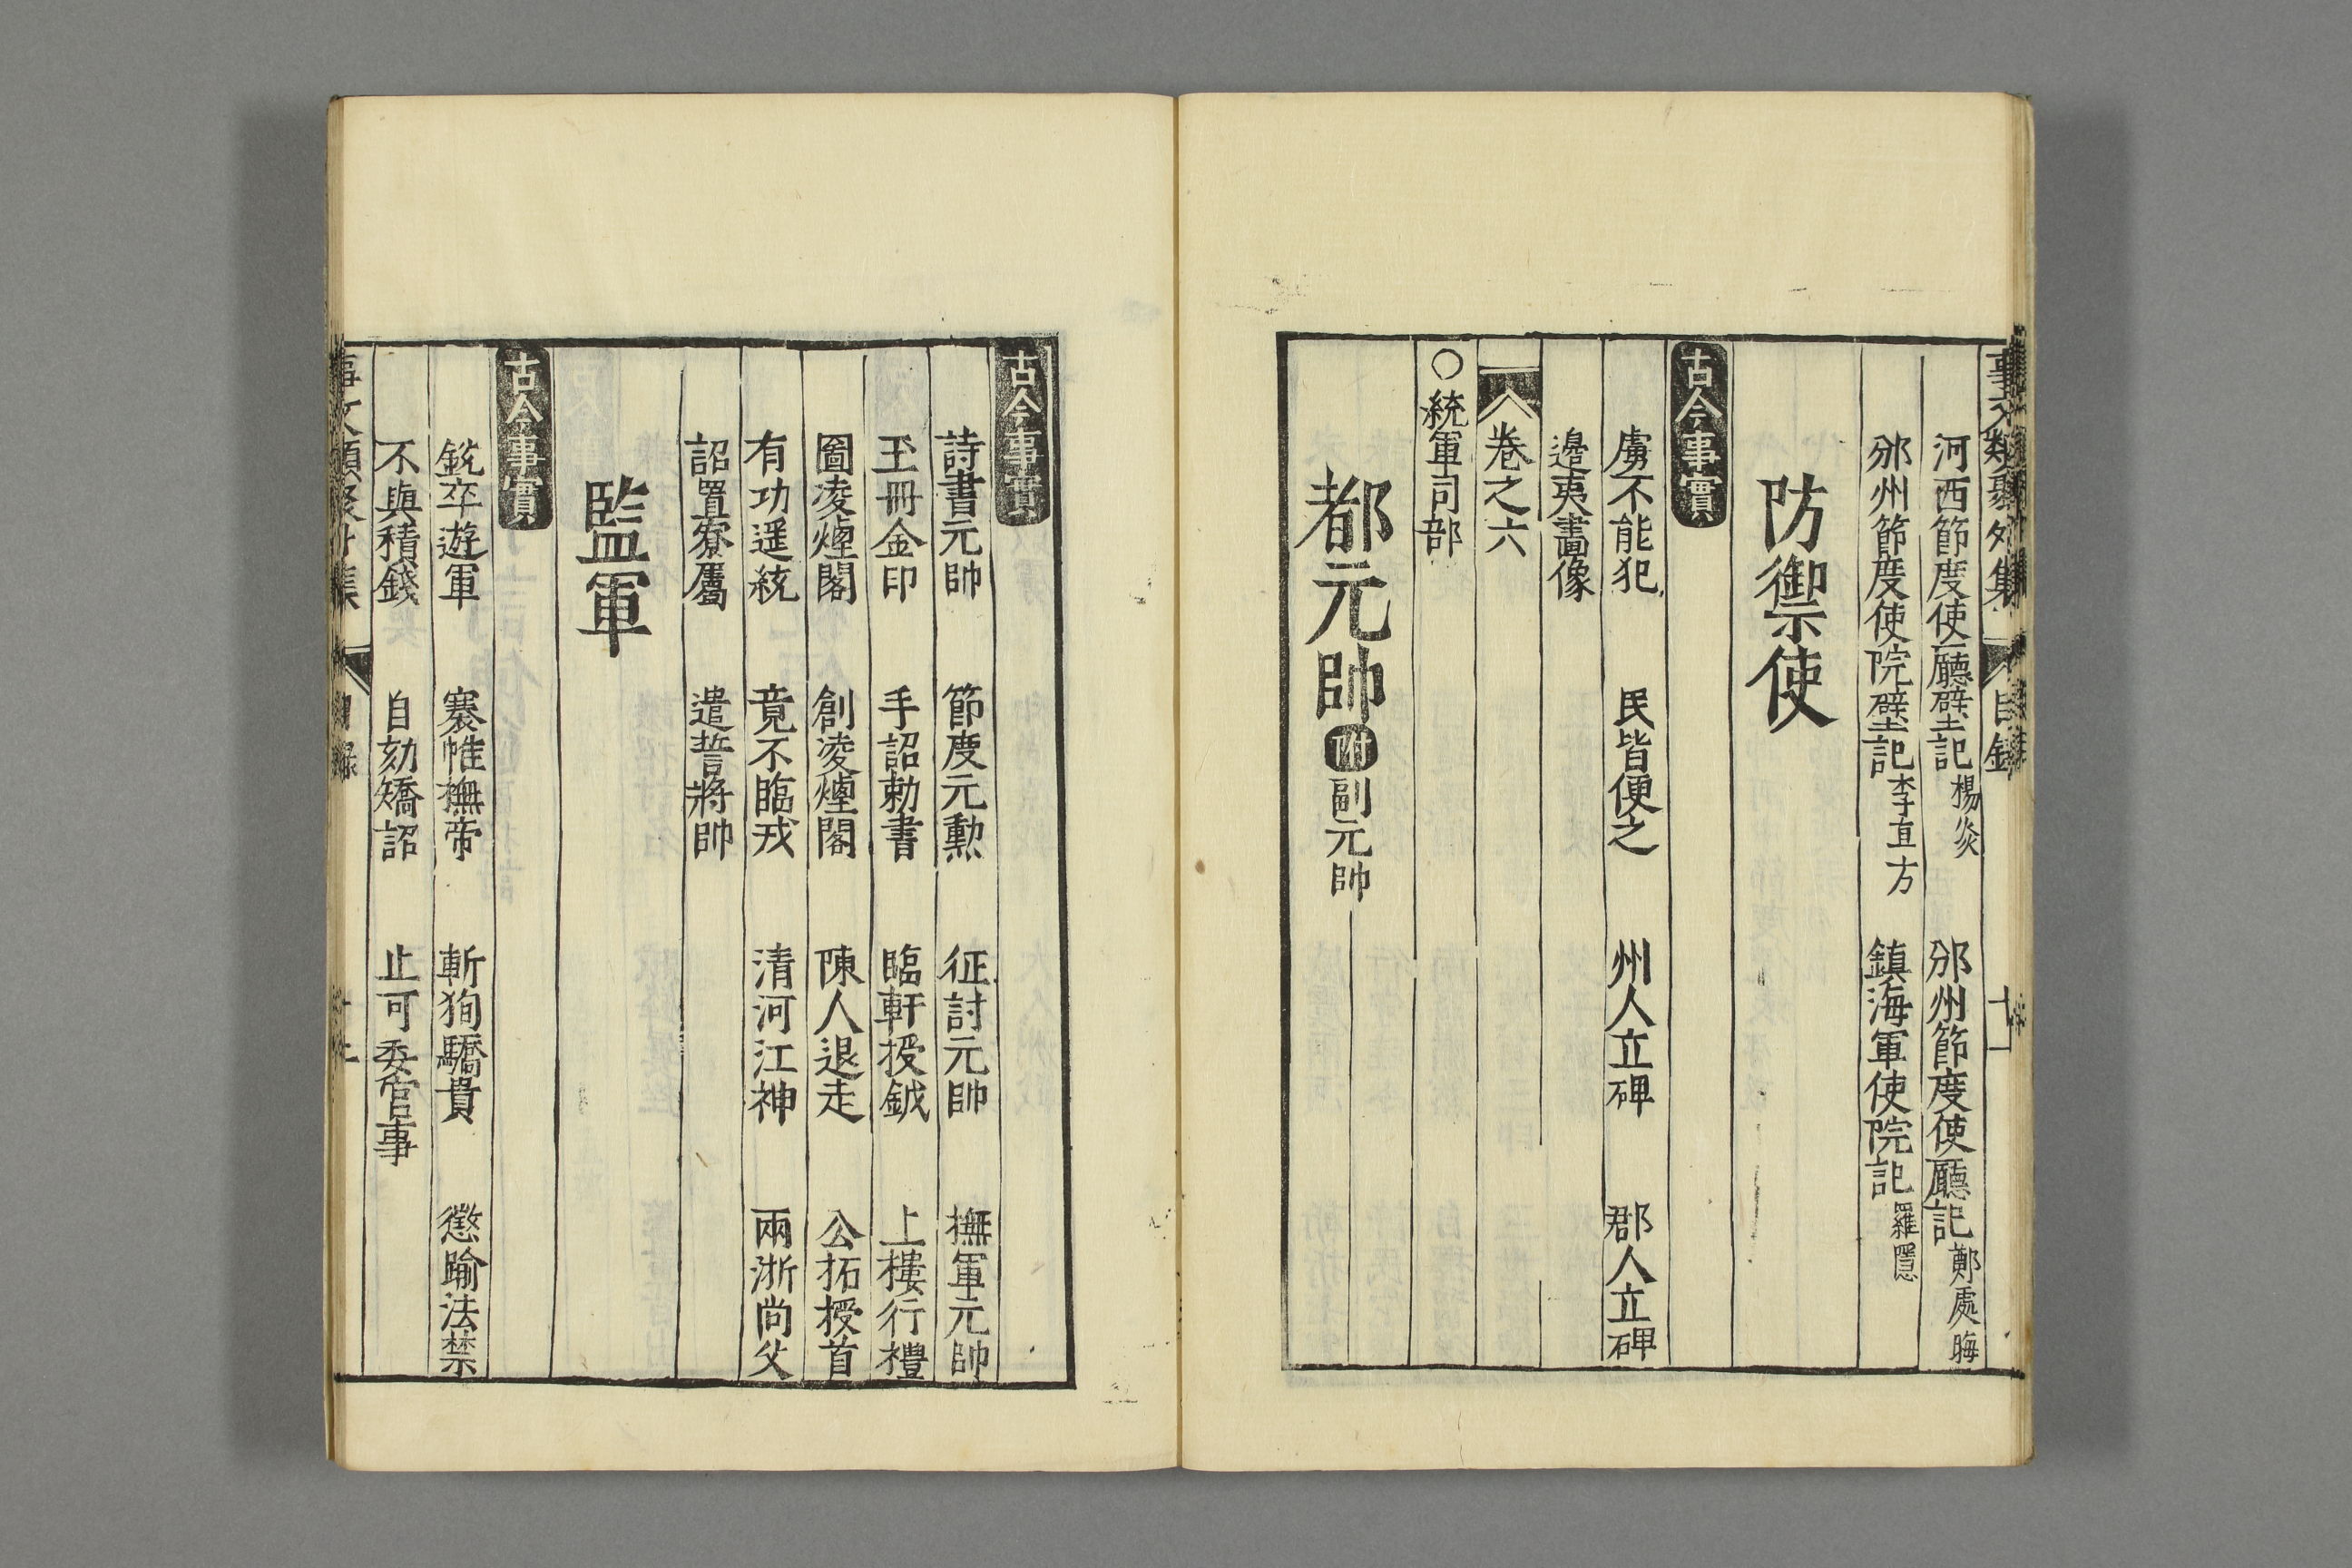 事文類聚外集 目録 十一
河西節度使廳壁記 楊炎 邠州節度使廳記 鄭處晦
邠州節度使院壁記 李直方 鎮海軍使院記 羅隱
防禦使
古今事實
虜不能犯 民皆便之 州人立碑 郡人立碑
邉夷畫像
卷之六
○統軍司部
都元帥 附 副元帥
古今事實
詩書元帥 節度元勲 征討元帥 撫軍元帥
玉冊金印 手詔勅書 臨軒授鉞 上樓行禮
圖凌煙閣 創凌煙閣 陳人退走 公拓授首
有功遥統 竟不臨戎 清河江神 兩浙尚父
詔置寮屬 遣誓將帥
監軍
古今事實
銳卒遊軍 褰帷撫帝 斬狥驕貴 懲踰法禁
不與積錢 自劾矯詔 止可委官事
事文類聚外集 目録